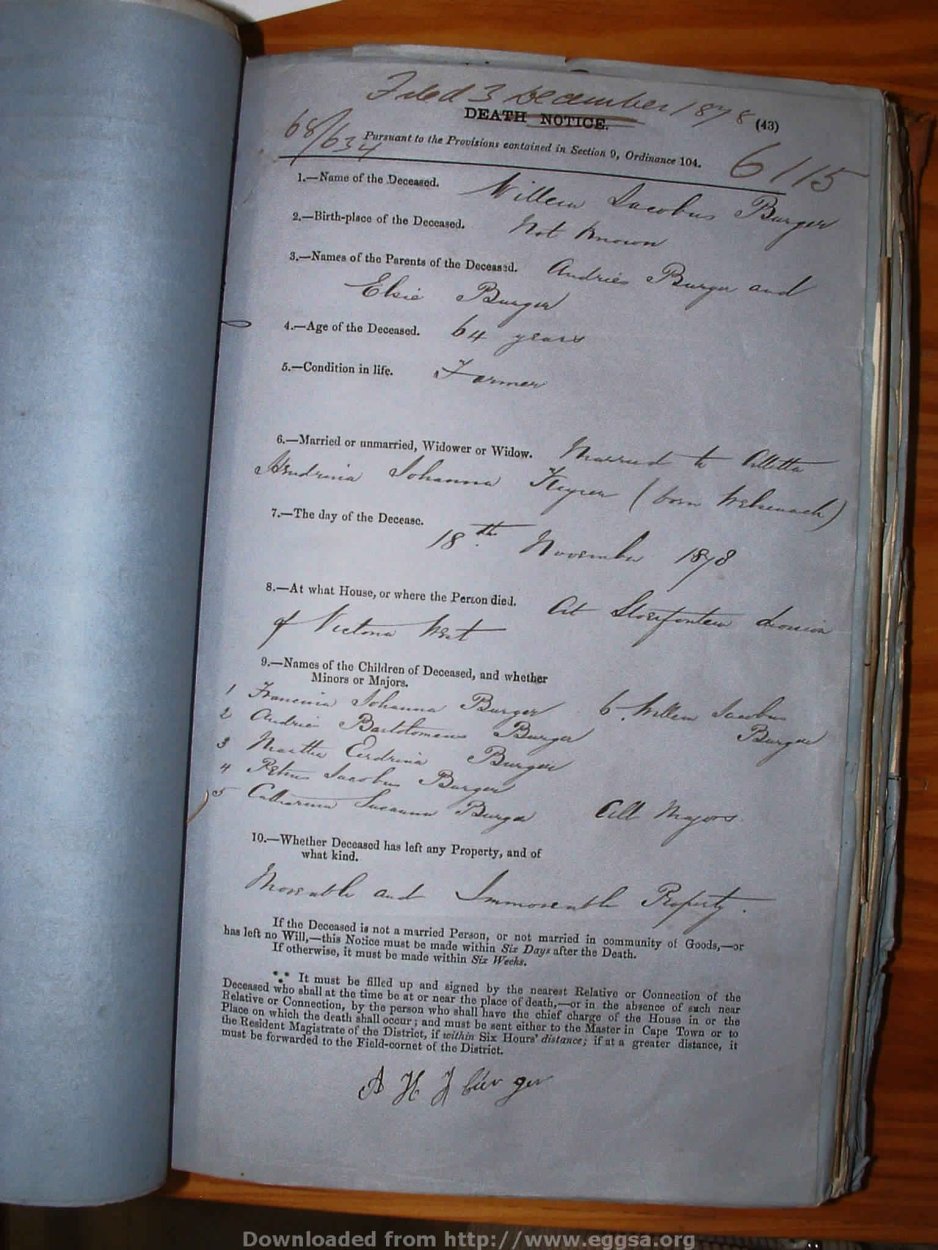 Filed 3 December 1878
DEATH NOTICE. (43)
68/634
Pursuant to the Provisions contained in Section 9, Ordinance 104.
6115
1.—Name of the Deceased. Willem Jacobus Burger
2.—Birth-place of the Deceased. Not Known
3.—Names of the Parents of the Deceased. Andries Burger and
Elsie Burger
4.—Age of the Deceased. 64 years
5.—Condition in life. Farmer
6.—Married or unmarried, Widower or Widow. Married to Alletta
Hendrina Johanna (born
7.—The day of the Decease.
18th November 1878
8.—At what House, or where the Person died. At division
of Victoria West
9.—Names of the Children of Deceased, and whether
Minors or Majors.
1 Francina Johanna Burger 6. Willem Jacobus
Burger
2 Andries Burger
3 Martha Burger
4 Petrus Jacobus Burger
5 Catharina Susanna Burger All Majors
10.—Whether Deceased has left any Property, and of
what kind.
Moveable and Immoveable Property.
If the Deceased is not a married Person, or not married in community of Goods,—or
has left no Will,—this Notice must be made within Six Days after the Death.
If otherwise, it must be made within Six Weeks.
It must be filled up and signed by the nearest Relative or Connection of the
Deceased who shall at the time be at or near the place of death,—or in the absence of such near
Relative or Connection, by the person who shall have the chief charge of the House in or the
Place on which the death shall occur; and must be sent either to the Master in Cape Town or to
the Resident Magistrate of the District, if within Six Hours' distance; if at a greater distance, it
must be forwarded to the Field-cornet of the District.
A H J burger
Downloaded from http://www.eggsa.org